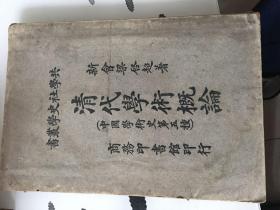 共學社史學叢書
新會梁啓超著
清代學術概論
（中國學術史第五種）
商務印書館印行